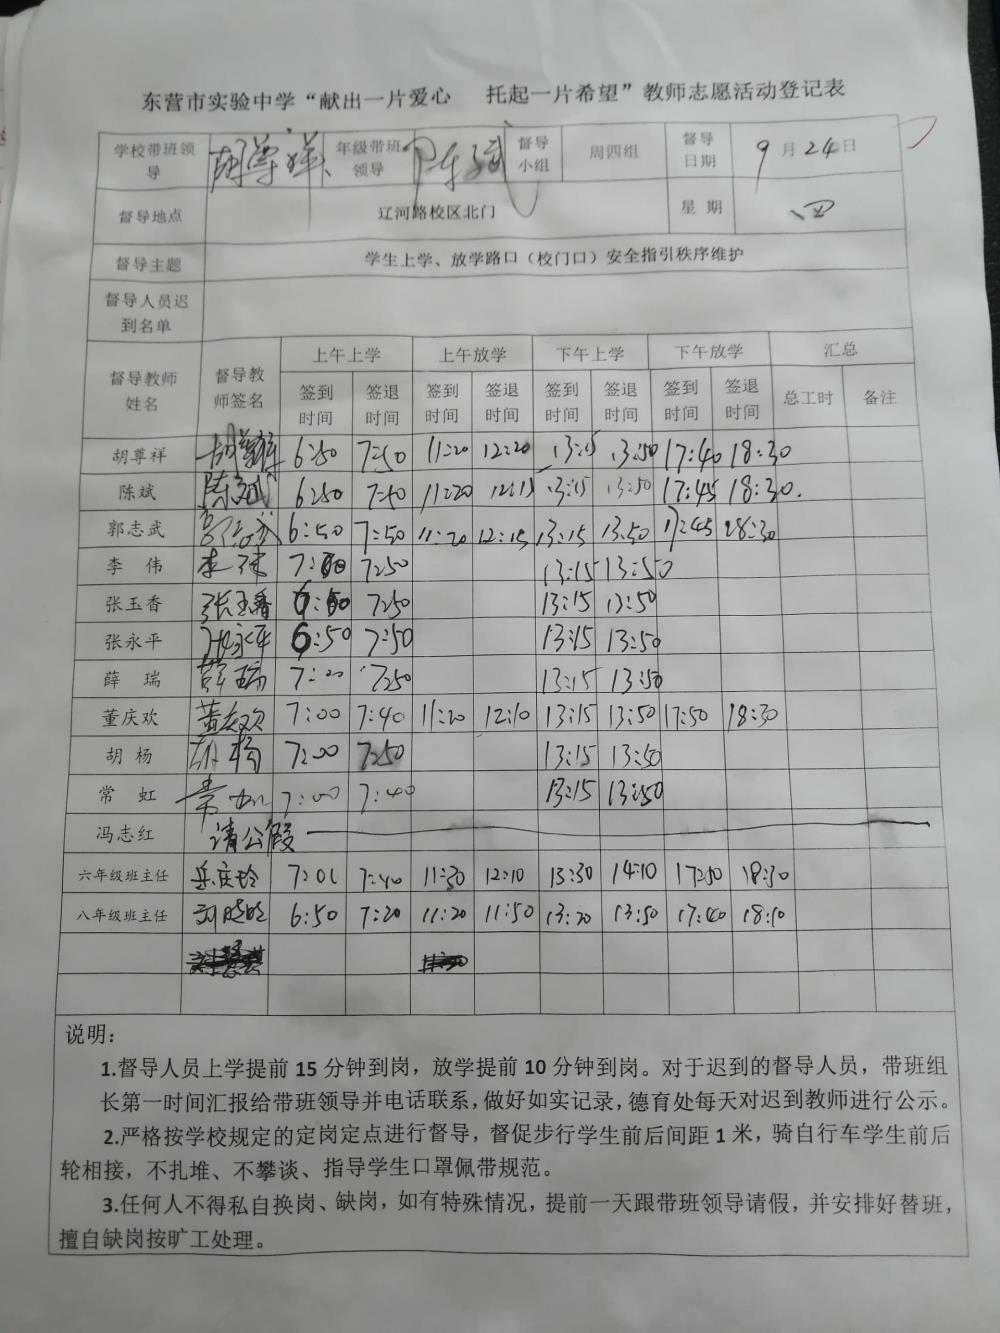 东营市实验中学“献出一片爱心 托起一片希望”教师志愿活动登记表
学校带班领导 胡尊祥 年级带班领导 陈斌 督导小组 周四组 督导日期 9月24日
督导地点 辽河路校区北门 星期 四
督导主题 学生上学、放学路口（校门口）安全指引秩序维护
督导人员迟到名单
督导教师姓名 督导教师签名 上午上学 上午放学 下午上学 下午放学 汇总
签到时间 签退时间 签到时间 签退时间 签到时间 签退时间 签到时间 签退时间 总工时 备注
胡尊祥 胡尊祥 6:50 7:50 11:20 12:20 13:15 13:50 17:40 18:30
陈斌 陈斌 6:50 7:50 11:20 12:15 13:15 13:50 17:45 18:30.
郭志武 郭志武 6:50 7:50 11:20 12:15 13:15 13:50 17:45 18:30
李伟 李伟 7:00 7:50 13:15 13:50
张玉香 张玉香 6:50 7:50 13:15 13:50
张永平 张永平 6:50 7:50 13:15 13:50
薛瑞 薛瑞 7:00 7:50 13:15 13:50
董庆欢 董庆欢 7:00 7:40 11:20 12:10 13:15 13:50 17:50 18:30
胡杨 胡杨 7:00 7:50 13:15 13:50
常虹 常虹 7:00 7:40 13:15 13:50
冯志红 请公假
六年级班主任 岳庆玲 7:01 7:40 11:30 12:10 13:30 14:10 17:50 18:30
八年级班主任 6:50 7:20 11:20 11:50 13:20 13:50 17:40 18:10
说明：
1.督导人员上学提前15分钟到岗，放学提前10分钟到岗。对于迟到的督导人员，带班组
长第一时间汇报给带班领导并电话联系，做好如实记录，德育处每天对迟到教师进行公示。
2.严格按学校规定的定岗定点进行督导，督促步行学生前后间距1米，骑自行车学生前后
轮相接，不扎堆、不攀谈、指导学生口罩佩带规范。
3.任何人不得私自换岗、缺岗，如有特殊情况，提前一天跟带班领导请假，并安排好替班，
擅自缺岗按旷工处理。